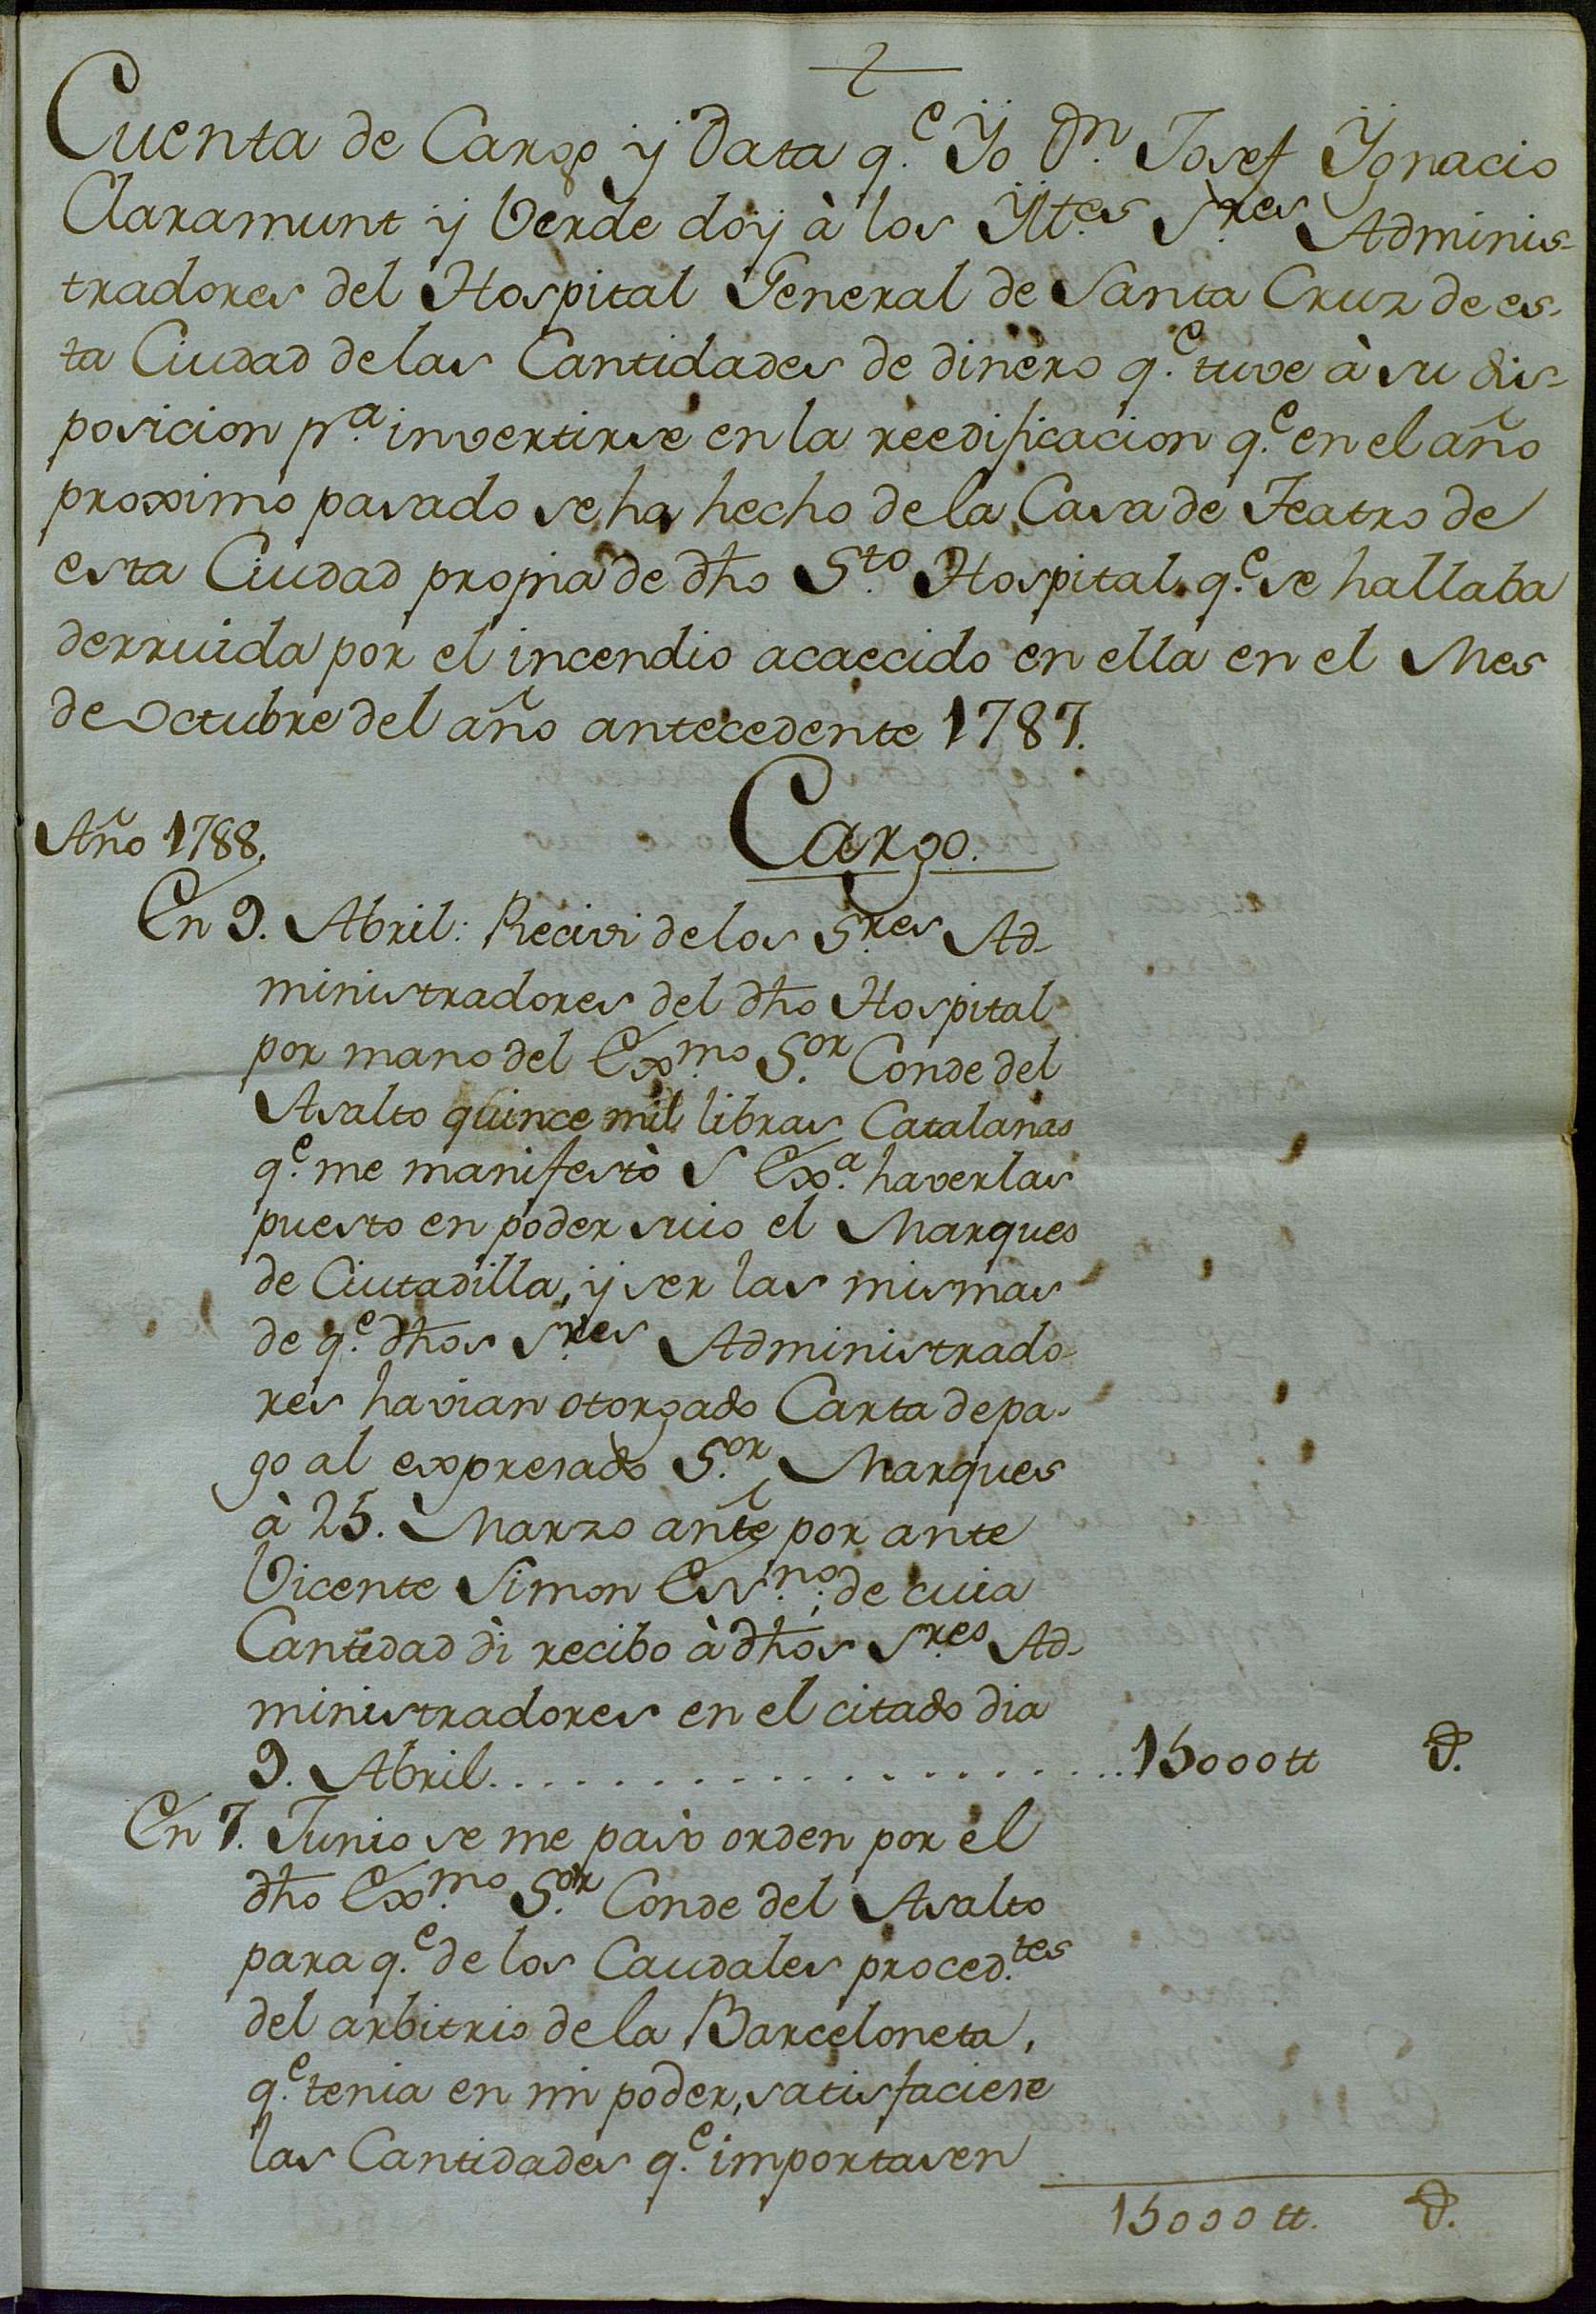 Cuenta de Cargo y Data q.e Yo Dn. Josef Ygnacio
Claramunt y Verde doy à los Yltes. Sres. Adminis-
tradores del Hospital General de Santa Cruz de es-
ta Ciudad de las Cantidades de dinero q.e tuve à su dis-
posicion pa. invertirse en la reedificacion q.e en el año
proximo pasado se ha hecho de la Casa de Teatro de
esta Ciudad propia de dho Sto. Hospital q.e se hallaba
derruida por el incendio acaecido en ella en el Mes
de Octubre del año antecedente 1787.
Cargo.
Año 1788.
En 9. Abril: Recivi de los Sres. Ad-
ministradores del dho Hospital
por mano del Exmo. Sor. Conde del
Asalto quince mil libras Catalanas
q.e me manifestò S Exa. haverlas
puesto en poder suio el Marques
de Ciutadilla, y ser las mismas
de q.e dhos Sres. Administrado-
res havian otorgado Carta de pa-
go al expresado Sor. Marques
à 25. Marzo añte por ante
Vicente Simon Essno.; de cuia
Cantidad di recibo à dhos Sres. Ad-
ministradores en el citado dia
9. Abril. . . . . . . . . . . . . . . . . . . . . . 15000 tt
En 7. Junio se me pasò orden por el
dho Exmo. Sor. Conde del Asalto
para q.e de los Caudales proced.tes
del arbitrio de la Barceloneta,
q.e tenia en mi poder, satisfaciese
las Cantidades q.e importasen
15000 tt.